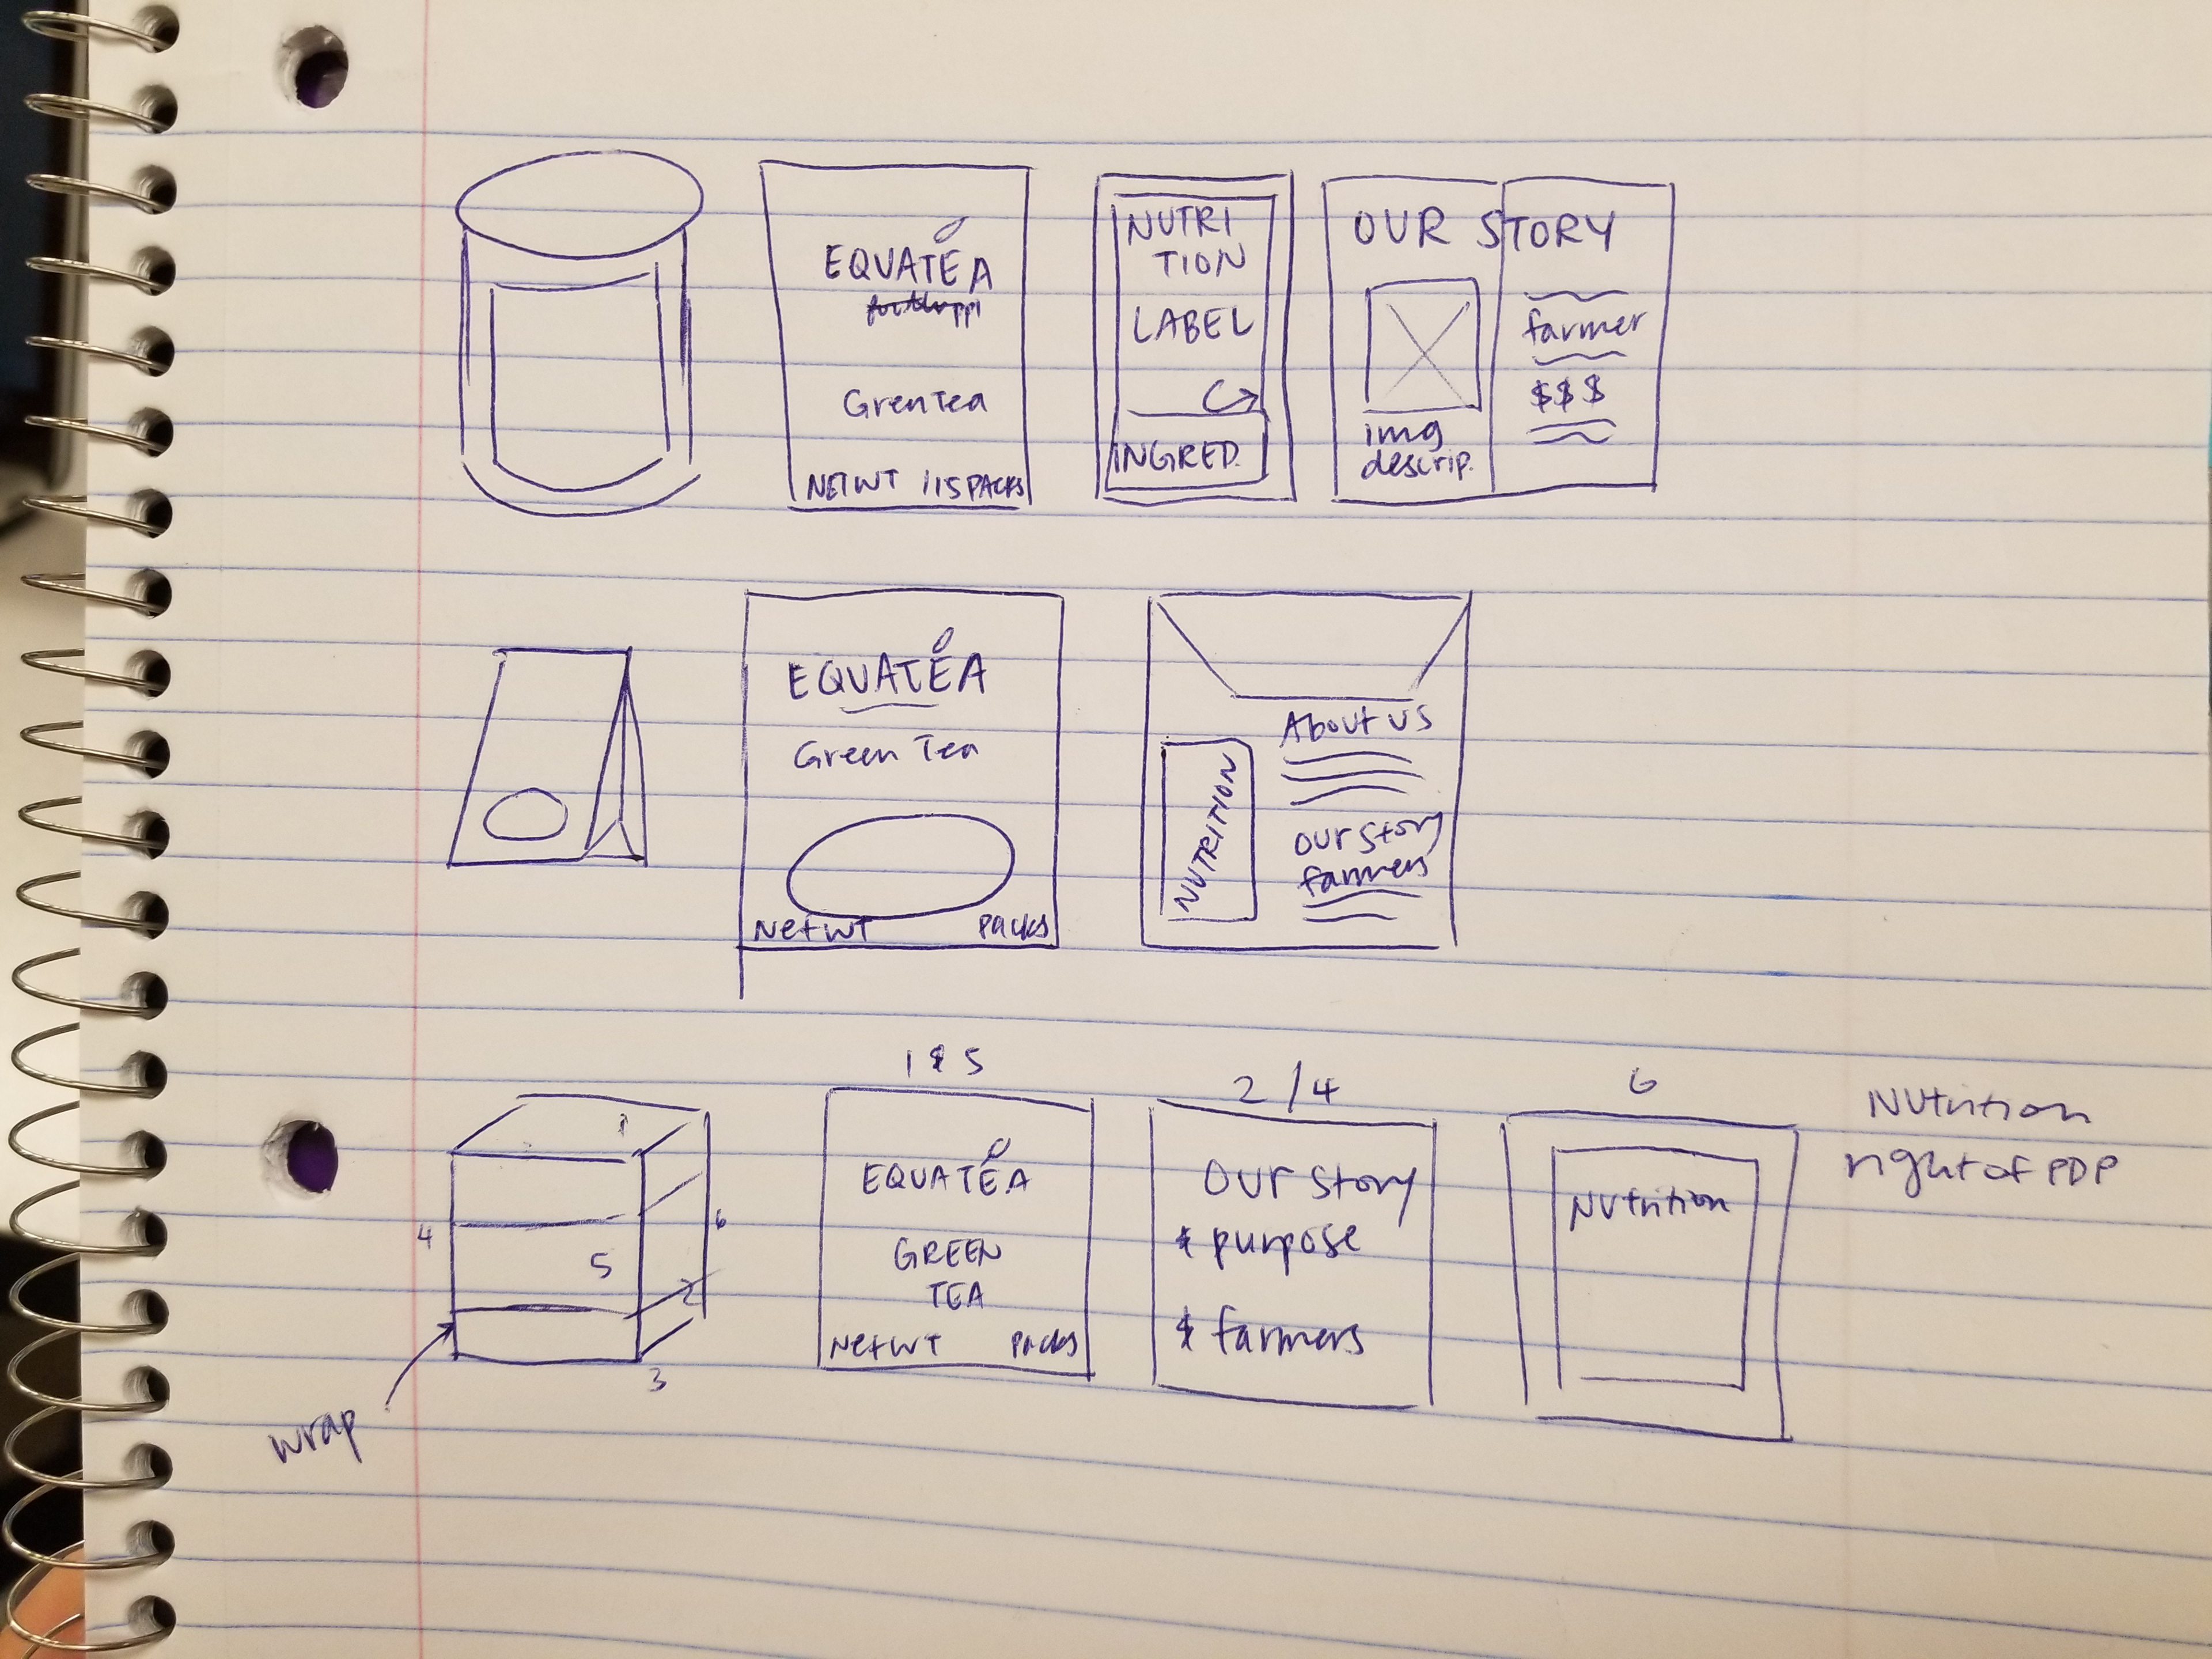 EQUATÉA
Gren Tea
NETWT 115 PACKS
NUTRI
TION
LABEL
INGRED.
OUR STORY
img
descrip.
farmer
$$$
EQUATÉA
Green Tea
NetWT PACKS
NUTRITION
About us
our story
farmers
1 & 5
2/4
6
Nutrition
right of PDP
1
4
5
6
2
3
wrap
EQUATÉA
GREEN
TEA
NetWT PACKS
Our Story
& purpose
& farmers
Nutrition